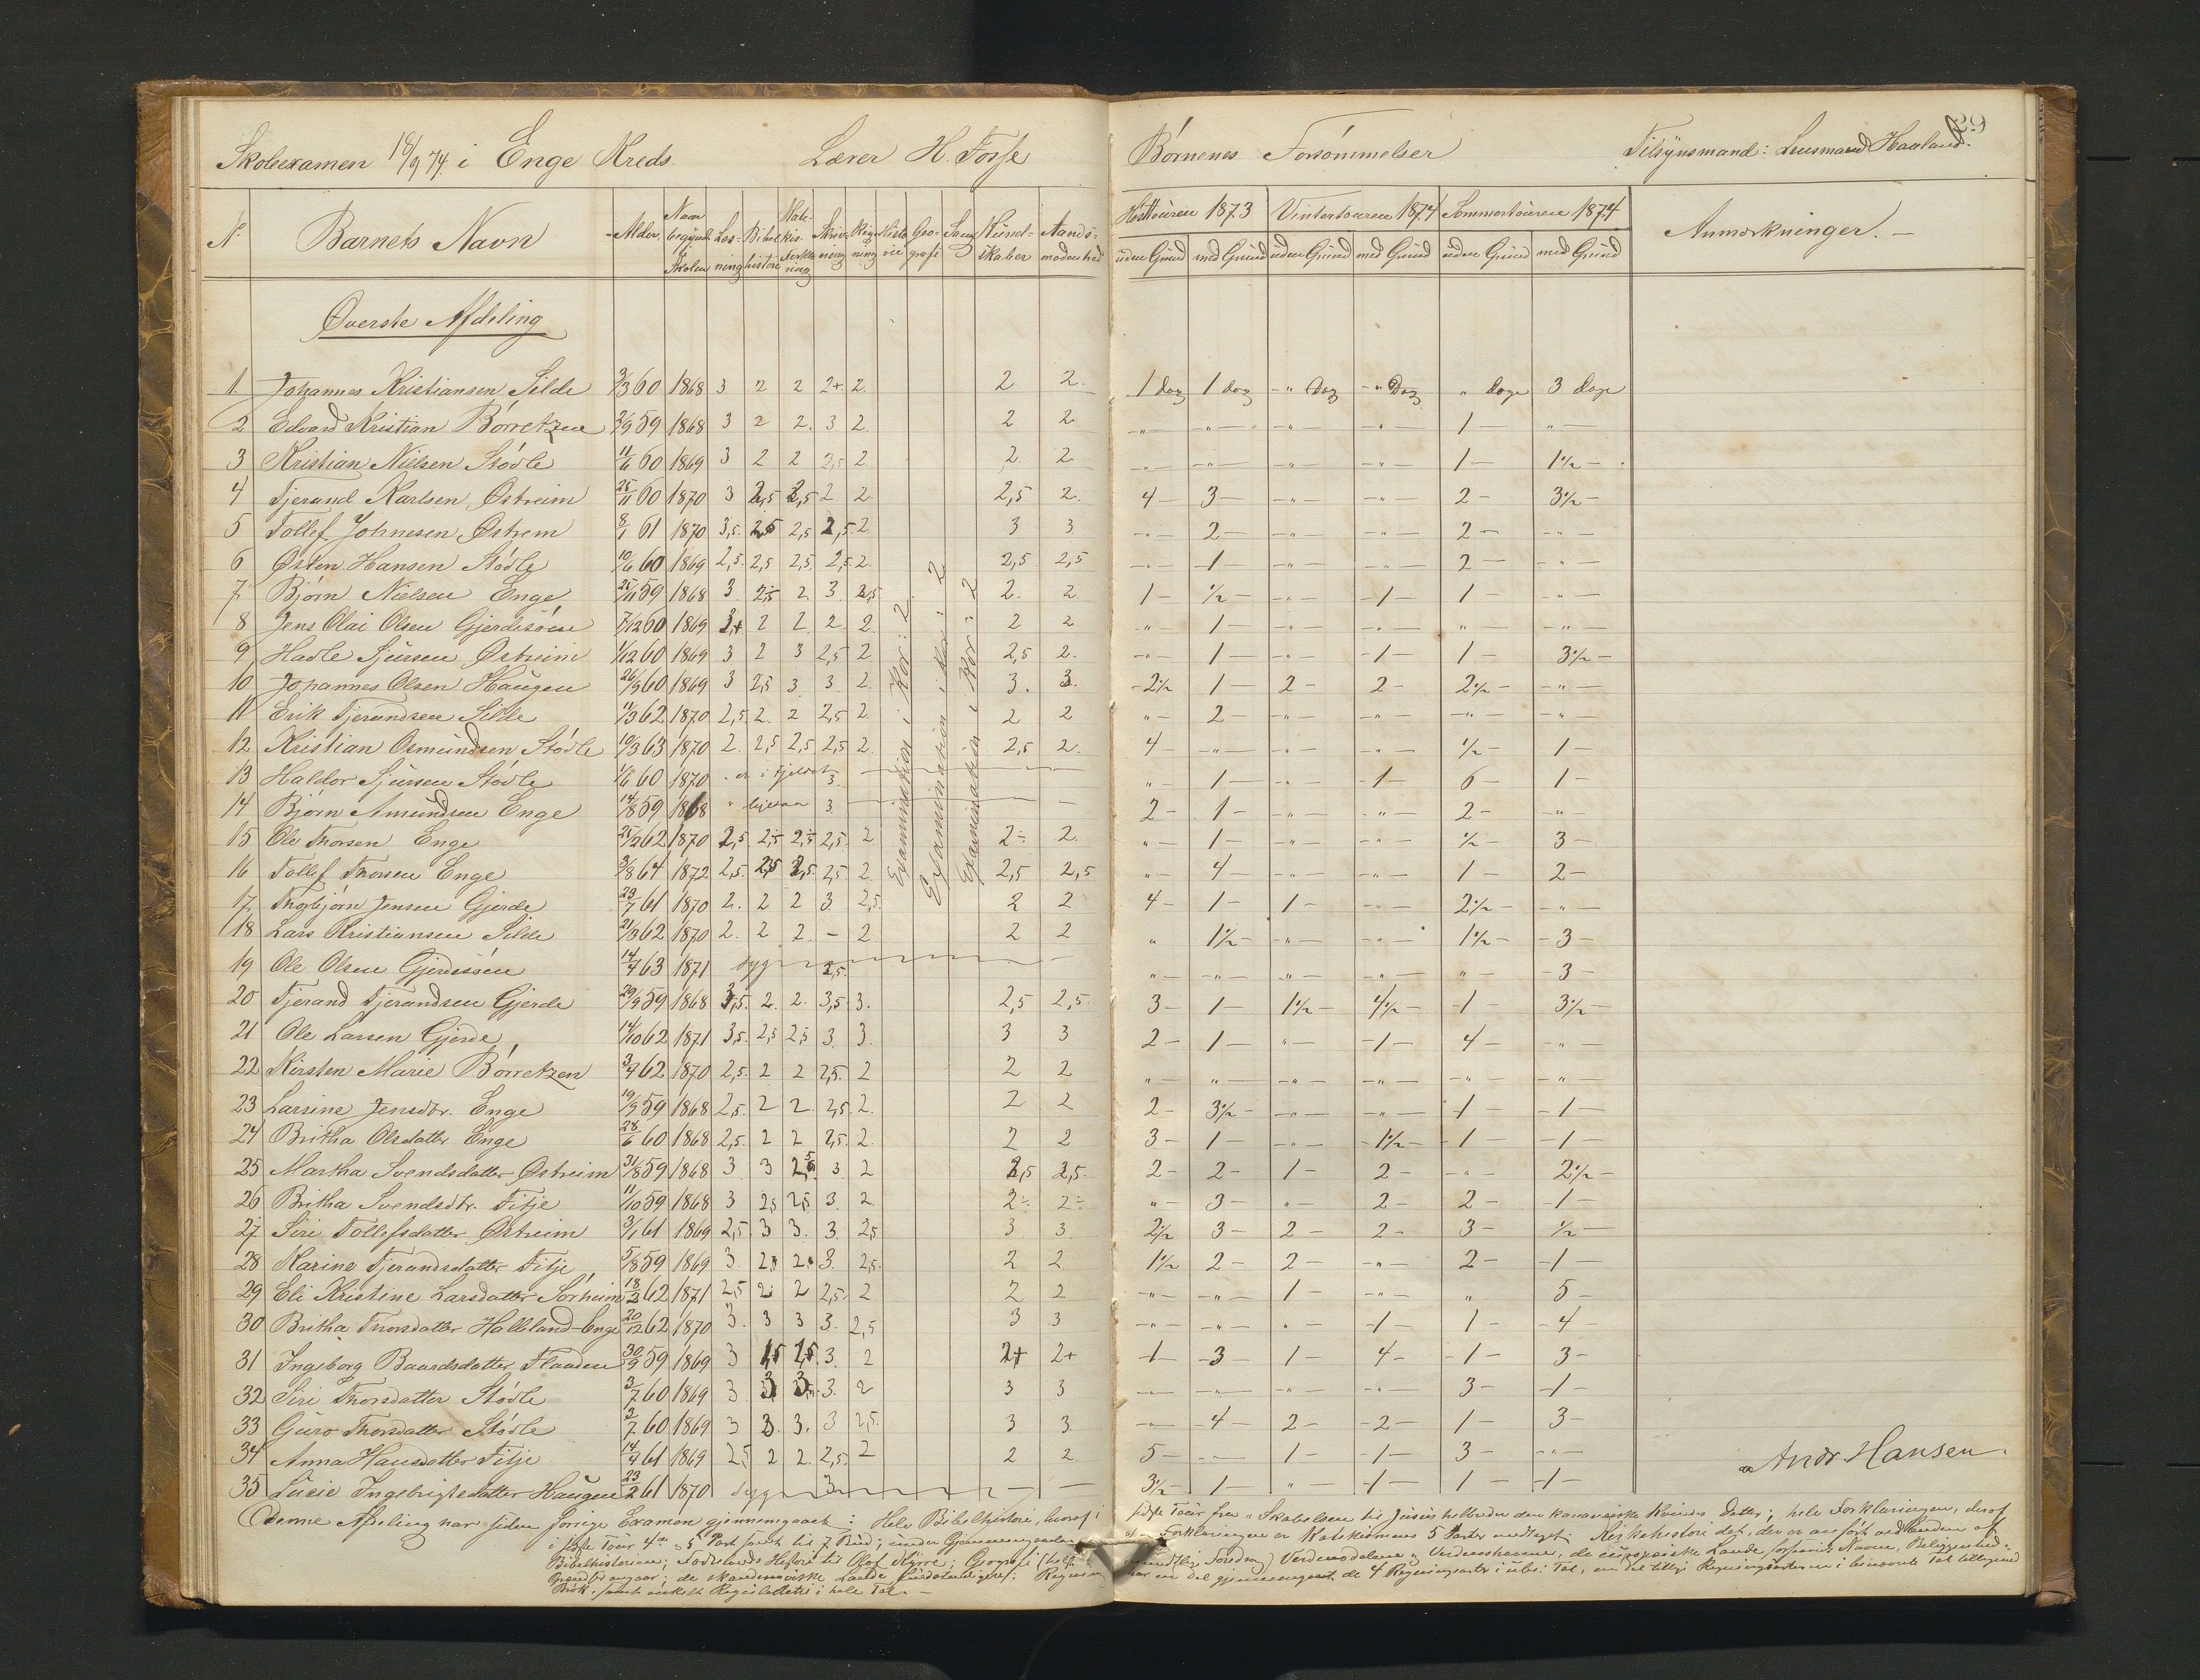 Skoleexamen 18/9 74. i Enge Kreds. Lærer H. Fosse
N. Barnets Navn Alder. Naar begyndt Skolen Læsning Bibelhistorie Katekis. Forklaring Skrivning Regning Historie Geografi Sang Kundskaber Aandsmodenhed
Øverste Afdeling
1. Johannes Kristiansen Silde 3/3 60 1868 3 2 2 2+ 2. 2 2.
2 Edvard Kristian Børretzen 2/9 59 1868 3 2 2. 3 2. 2 2
3 Kristian Nielsen Stødle 11/6 60 1869 3 2 2 2,5 2. 2. 2
4 Tjerand Karlsen Østreim 25/11 60 1870 3 2,5 2,5 2. 2. 2,5 2.
5 Tollef Johnesen Østrem 8/1 61 1870 3,5. 2,5 2,5 2,5. 2. 3 3
6 Østen Hansen Stødle 10/6 60 1869 2,5. 2,5 2,5. 2,5. 2. 2,5 2,5
7 Bjørn Nielsen Enge 25/11 59 1868 3. 2,5 2 3. 2,5 2. 2.
8 Jens Olai Olsen Gjerdisøen 7/12 60 1869 2+ 2 2 2. 2. 2 2
9 Hadle Sjursen Østreim 1/12 60 1869 3 2 3 2,5 2. 2,5 2.
10 Johannes Olsen Haugen 26/9 60 1869 3 2,5 3. 3. 2. 3. 3.
11 Erik Tjerandsen Silde 11/3 62 1870 2,5. 2. 2 2,5 2. 2 2
12 Kristian Osmundsen Stødle 19/3 63 1870 2. 2,5 2,5 2,5 2. 2,5 2.
13 Haldor Sjursen Stødle 1/6 60 1870 - er i Fjeldet 3.
14 Bjørn Amundsen Enge 14/8 59 1868 " ligesaa 3.
15 Ole Thorsen Enge 25/2 62 1870 2,5 2,5 2,5 2,5. 2 2÷ 2.
16 Tollef Thorsen Enge 3/8 64 1872 2,5. 2,5 2,5. 2,5 2. 2,5 2,5
17 Thorbjørn Jensen Gjerde 23/7 61 1870 2. 2 2 3. 2,5. 2 2
18 Lars Kristiansen Silde 21/3 62 1870 2. 2 2. – 2. 2 2
19 Ole Olsen Gjerdisøen 14/4 63 1871 syg 2,5.
20 Tjerand Tjerandsen Gjerde 29/9 59 1868 3,5. 2. 2. 3,5. 3. 2,5 2,5.
21 Ole Larsen Gjerde 14/10 62 1871 3,5. 2,5 2,5 3. 3. 3 3
22 Kirsten Marie Børretzen 3/4 62 1870 2,5. 2 2 2,5. 2 2 2
23 Larsine Jensdtr. Enge 19/9 59 1868 2,5. 2 2. 2,5. 2. 2 2
24 Britha Olsdatter Enge 28/6 60 1868 2,5. 2 2 2,5. 2. 2 2
25 Martha Svendsdatter Østreim 31/8 59 1868 3 3 2,5 3. 2 2,5 2,5.
26 Britha Svendsdtr. Fitje 11/10 59 1868 3 2,5 2,5. 3. 2. 2÷ 2÷
27 Siri Tollefsdatter Østreim 3/1 61 1869 2,5. 3 3. 3. 2,5 3 3.
28 Karine Tjerandsdatter Fitje 5/8 59 1869 3. 2. 2. 3. 2,5. 2 2.
29 Eli Kristine Larsdatter Sørheim 18/2 62 1871 2,5 2 2 2,5. 2 2 2
30 Britha Thorsdatter Halleland-Enge 20/12 62 1870 3. 3 3 3. 2,5 3 3
31 Ingeborg Baardsdatter Flaaden 30/9 59 1869 3 2,5 2,5. 3. 2 2+ 2+
32 Siri Thorsdatter Stødle 3/7 60 1869 3 3 3. 3. 2 3 3
33 Guro Thorsdatter Stødle 3/7 60 1869 3 3. 3. 3 2,5. 3 3.
34 Anna Hansdatter Fitje 14/4 61 1869 2,5 2 2. 2,5. 2 2 2.
35 Lucie Ingebrigtsdatter Haugen 23/2 61 1870 syg 3
Examination i Kor: 2
Examination i Kor: 2
Examination i Kor: 2
Denne Afdeling har siden forrige Examen gjennemgaaet: Hele Bibelhistorie, hvoraf i
i sidste Tour 4de og 5 Part samt til 7 Bud; under Gjennemgaaelse
Bibelhistorien; Fædrelands Historie til Olaf Kyrre; Geografi
de skandinaviske Lande
Bibk. samt enkelte i hele Tal. –
Børnenes Forsømmelser Tilsynsmand: Lensmand Haaland.
Høsttouren 1873 Vintertouren 1874 Sommertouren 1874 Anmærkninger. –
uden Grund med Grund uden Grund med Grund uden Grund med Grund
1 dag 1 dag -"- Dag -"- Dag " dage 3 dage
-"- -"- -"- -"- 1 – " –
-"- -"- -"- -"- 1 – 1½ –
4 – 3 – -"- -"- 2 – 3½ –
-"- 2 – -"- -"- 2 – -"-
-"- 1 – -"- -"- 2 – -"-
1 – ½ – -"- 1 – 1 – -"-
" – 1 – -"- -"- " – -"-
-"- 1 – -"- 1 – 1 – 3½ –
2½ 1 – 2 – 2 – 2½ – -"-
" – 2 – -"- -"- -"- -"-
4 – -"- -"- -"- ½ – 1 –
" – 1 – -"- 1 – 6 – 1 –
2 – 1 – -"- -"- 2 – -"-
" – 1 – -"- -"- ½ – 3 –
" – 4 – -"- -"- 1 – 2 –
4 – 1 – 1 – -"- 2½ – -"-
" 1½ – -"- -"- 1½ – 3 –
" – -"- -"- -"- " – 3 –
3 – 1 – 1½ – 4½ – 1 – 3½ –
2 – 1 – " – 1 – 4 – -"-
" – " – -"- -"- -"- -"-
2 – 3½ – -"- -"- 1 – 1 –
3 – 1 – -"- 1½ – 1 – 1 –
2 – 2 – 1 – 2 – -"- 2½ –
" – 3 – " – 2 – 2 – 1 –
2½ 3 – 2 – 2 – 3 – ½ –
1½ 2 – 2 – -"- 2 – 1 –
-"- -"- 1 – -"- " 5 –
-"- -"- " – 1 – 1 – 4 –
1 – 3 – 1 – 4 – 1 – 3 –
-"- -"- -"- -"- 3 – 1 –
-"- 4 – 2 – 2 – 1 – 3 –
5 – -"- 1 – 1 – 3 – -"-
3½ – 1 – " – 1 – 1 – 1 –
Andr. Hansen.
sidste Tour fra "Skabelsen til Jesus helbreder den kananæiske Kvindes Datter; hele Forklaringen, deraf
af Forklaringen og Katekismens 5 Parter medtaget; Kirkehistorie det, der er anført
mundtlig Foredrag) Verdensdelene og Verdenshavene, de europæiske Lande Navne, Beliggenhed
har en del gjennemgaaet de 4 Regningsarter i ube: Tal, en del tillige Regningsarterne i benævnte Tal